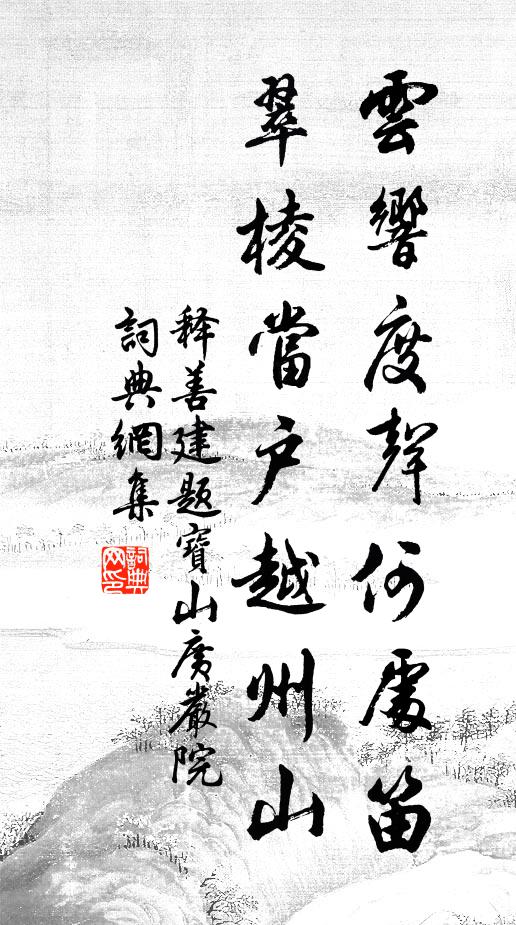 雲響度聲何處笛
翠棱當户越州山
释善建題寶山廣嚴院
詞典網集
詞典网印